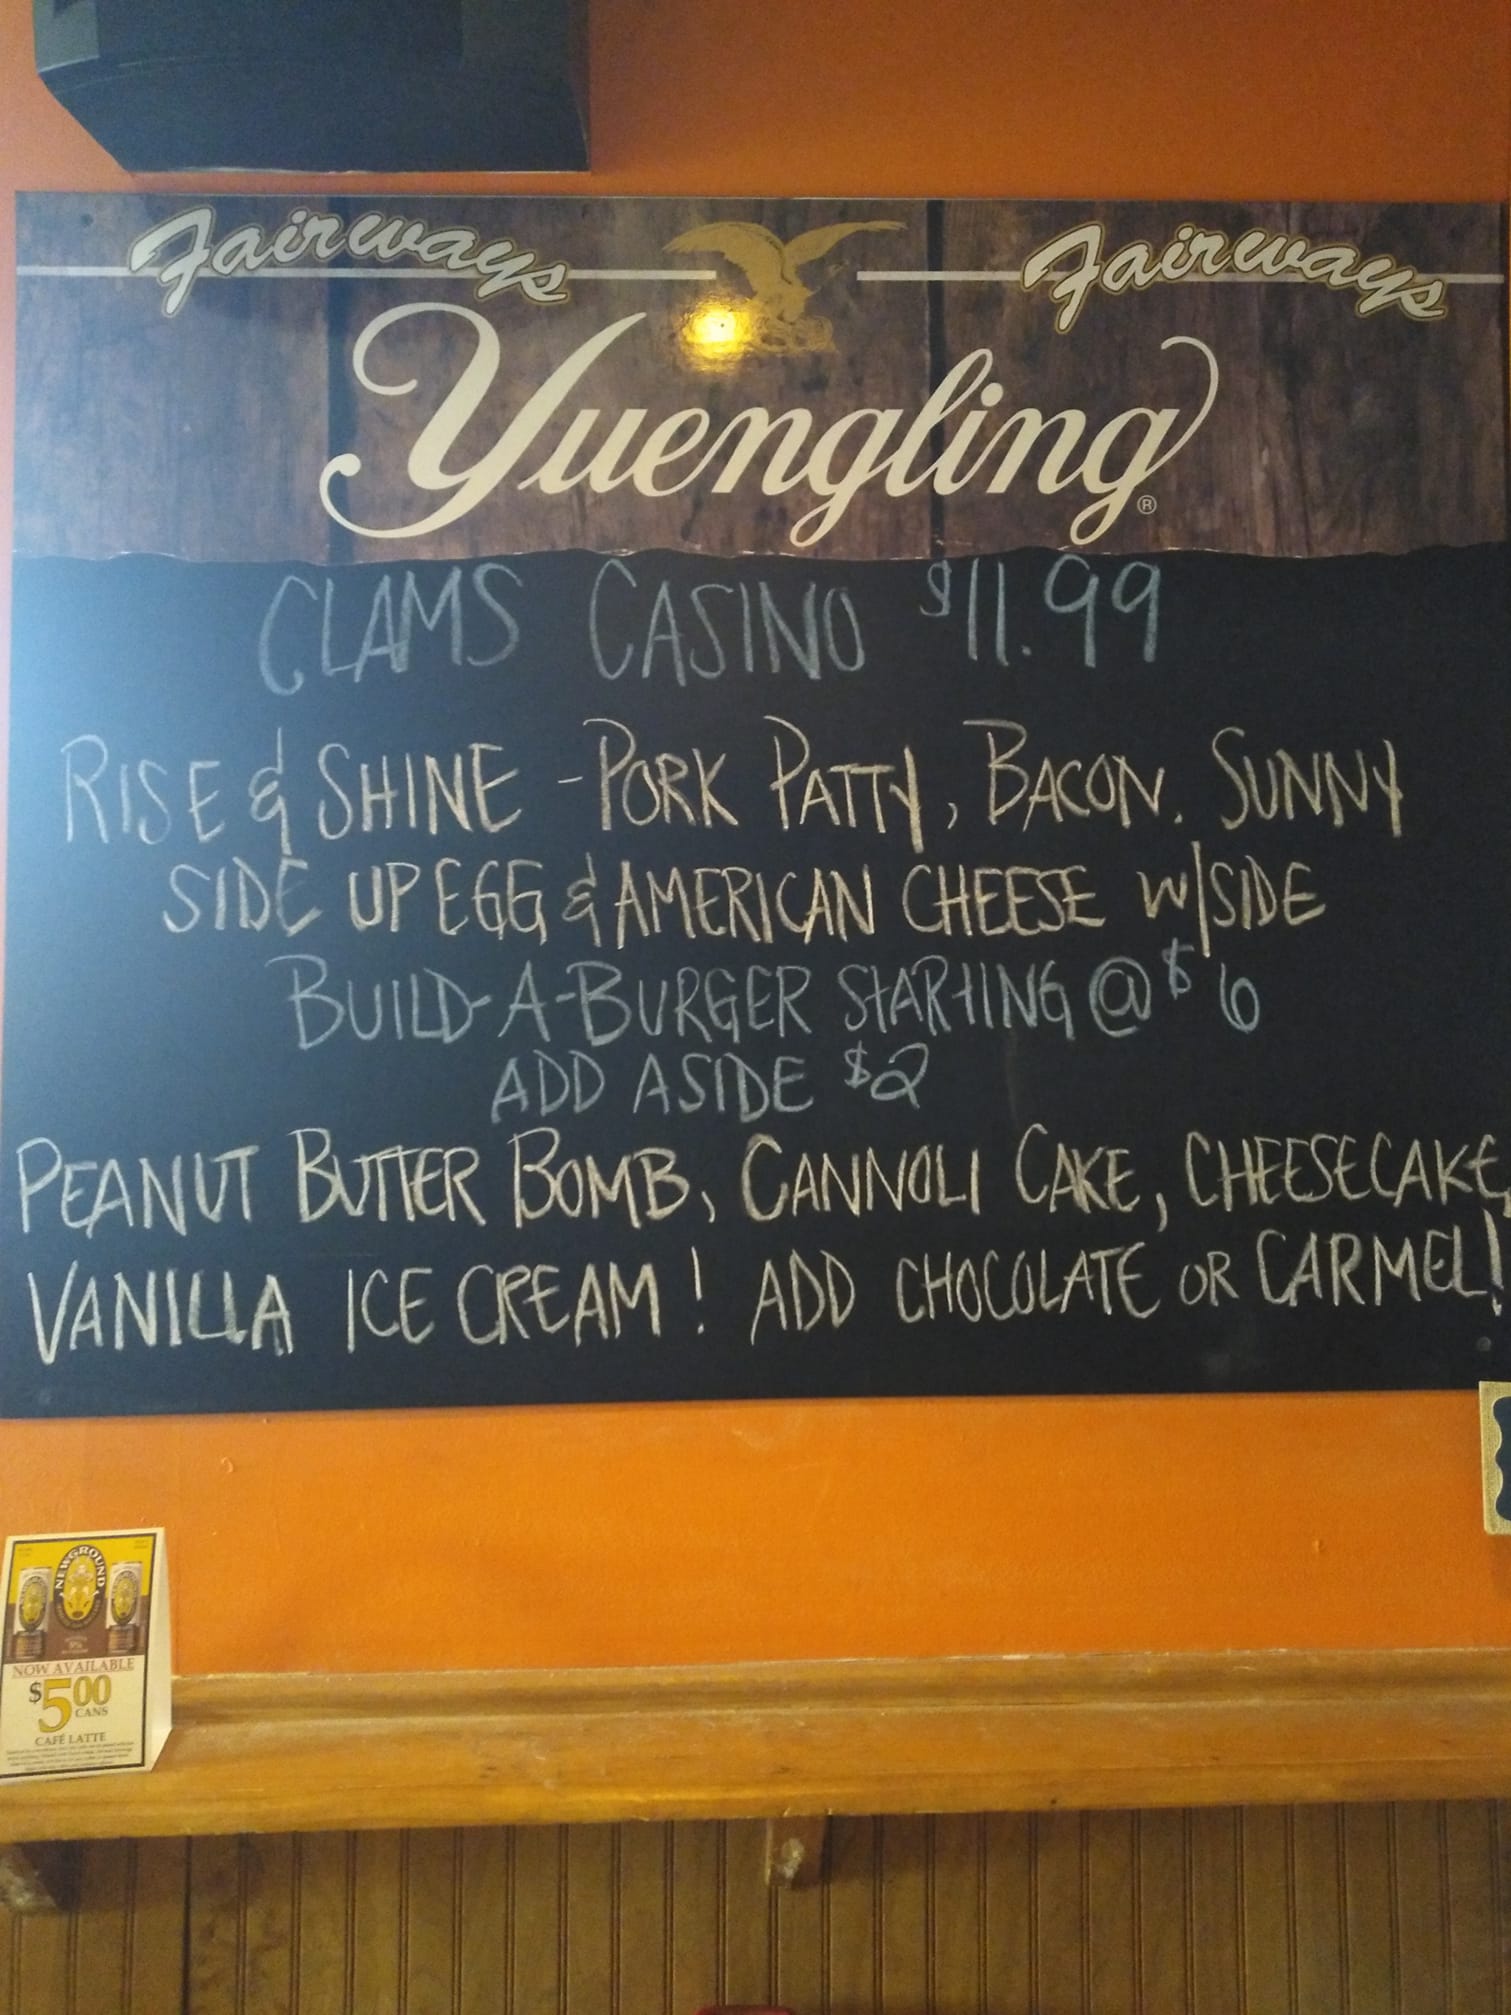 Fairways Fairways
Yuengling®
CLAMS CASINO $11.99
RISE & SHINE - PORK PATTY, BACON. SUNNY
SIDE UP EGG & AMERICAN CHEESE W/SIDE
BUILD-A-BURGER STARTING @ $6
ADD A SIDE $2
PEANUT BUTTER BOMB, CANNOLI CAKE, CHEESECAKE,
VANILLA ICE CREAM! ADD CHOCOLATE OR CARMEL!
NEWGROUND
NOW AVAILABLE
$5.00
CANS
CAFÉ LATTE